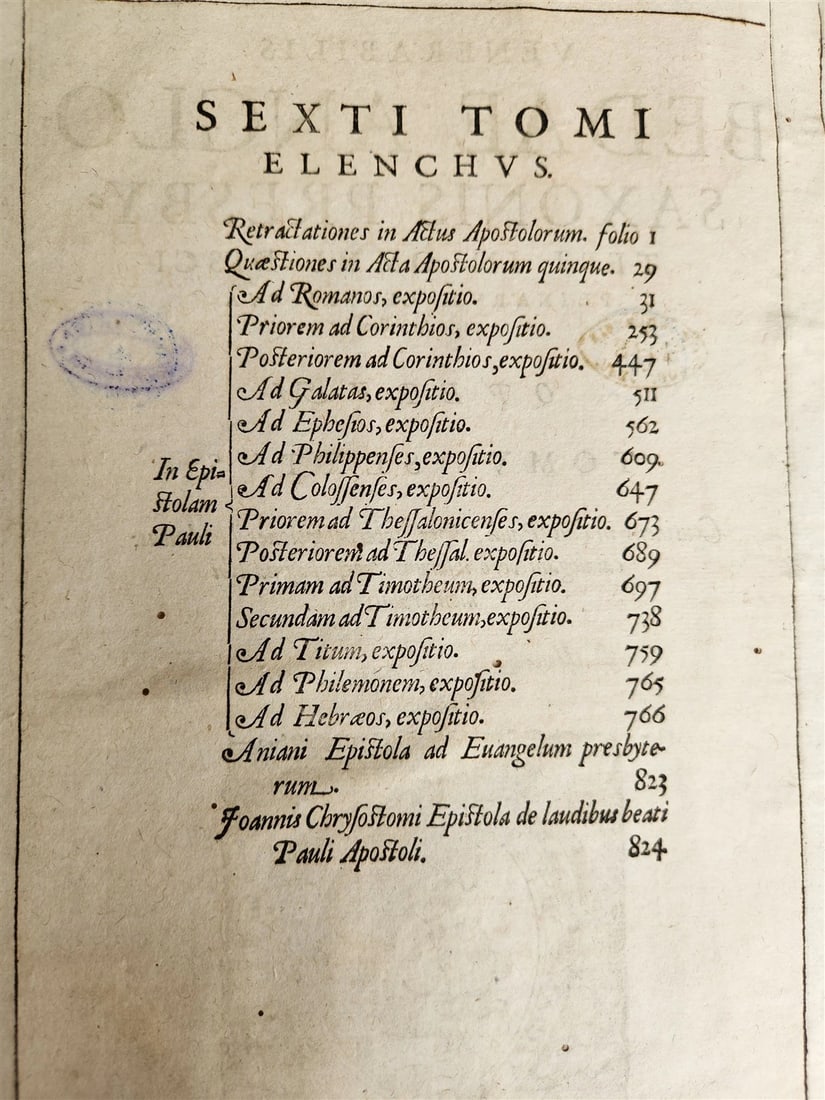 SEXTI TOMI
ELENCHVS.
Retractationes in Actus Apostolorum. folio 1
Quæstiones in Acta Apostolorum quinque. 29
Ad Romanos, expoſitio. 31
Priorem ad Corinthios, expoſitio. 253
Posteriorem ad Corinthios, expoſitio. 447
Ad Galatas, expoſitio. 511
Ad Epheſios, expoſitio. 562
Ad Philippenſes, expoſitio. 609.
In Epi=
stolam
Pauli
Ad Coloſſenſes, expoſitio. 647
Priorem ad Theſſalonicenſes, expoſitio. 673
Posteriorem ad Theſſal. expoſitio. 689
Primam ad Timotheum, expoſitio. 697
Secundam ad Timotheum, expoſitio. 738
Ad Titum, expoſitio. 759
Ad Philemonem, expoſitio. 765
Ad Hebræos, expoſitio. 766
Aniani Epistola ad Euangelum presbyte-
rum. 823
Joannis Chryſostomi Epistola de laudibus beati
Pauli Apostoli. 824